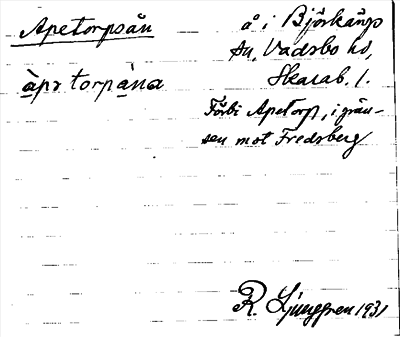 Apetorpsån
å i Björkängs
sn, Vadsbo hd,
Skarab. l.
àpətorpàna
Förbi Apetorp, i grän-
sen mot Fredsberg
R. Ljunggren 1931